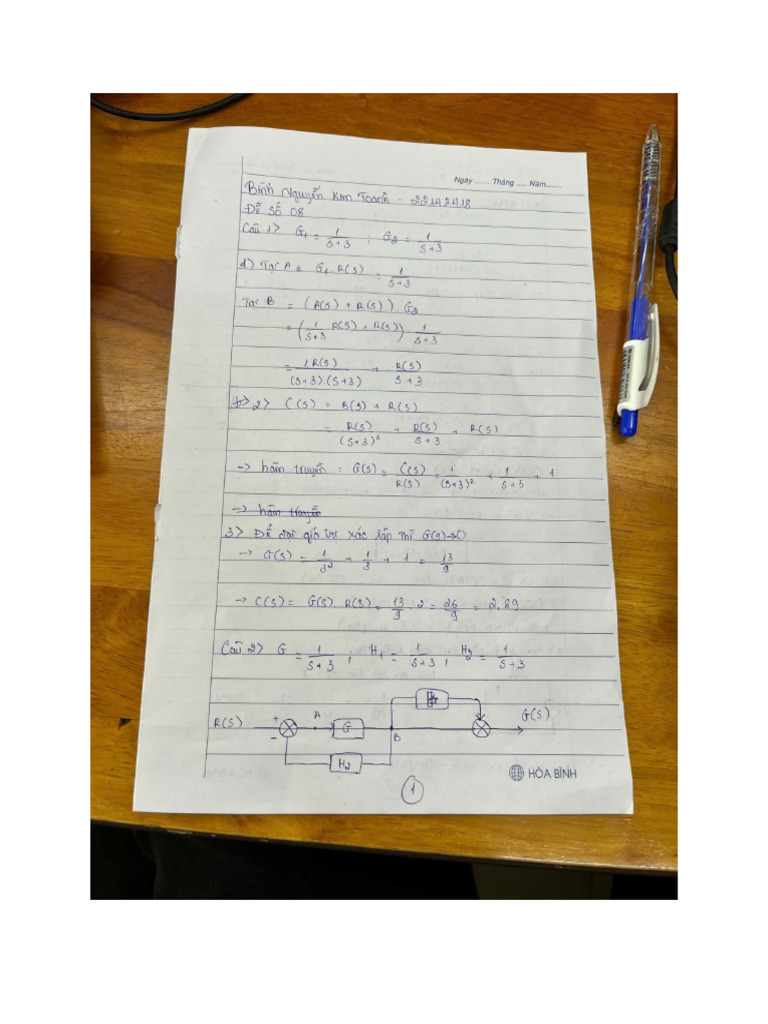 Ngày ....... Tháng ..... Năm........
Bình Nguyễn Kim Toanh - 22142418
Đề Số 08
Câu 1> G1 = 1/(s+3) ; G2 = 1/(s+3)
Tại A = G1 R(S) = 1/(s+3)
Tại B = (A(S) + R(S)) . G2
= (1/(s+3) R(S) + R(S)) . 1/(s+3)
= 1R(S)/((s+3).(s+3)) + R(S)/(s+3)
2> C(S) = B(S) + R(S)
= R(S)/(s+3)² + R(S)/(s+3) + R(S)
-> hàm truyền : G(S) = C(S)/R(S) = 1/(s+3)² + 1/(s+3) + 1
-> hàm truyền
3> Để đạt giá trị xác lập thì G(S)->0
-> G(S) = 1/3² + 1/3 + 1 = 13/9
-> C(S) = G(S) R(S) = 13/9 . 2 = 26/9 = 2,89
Câu 2> G = 1/(s+3) ; H1 = 1/(s+3) ; H2 = 1/(s+3)
R(S) + - A G B G(S)
H2
HÒA BÌNH
1